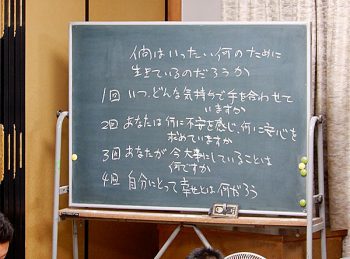 何はいったい何のために
生きているのだろうか
1回 いつ、どんな気持ちで手を合わせて
いますか
2回 あなたは何に不安を感じ、何に安心を
求めていますか
3回 あなたが今大事にしていることは
何ですか
4回 自分にとって幸せとは何がろう